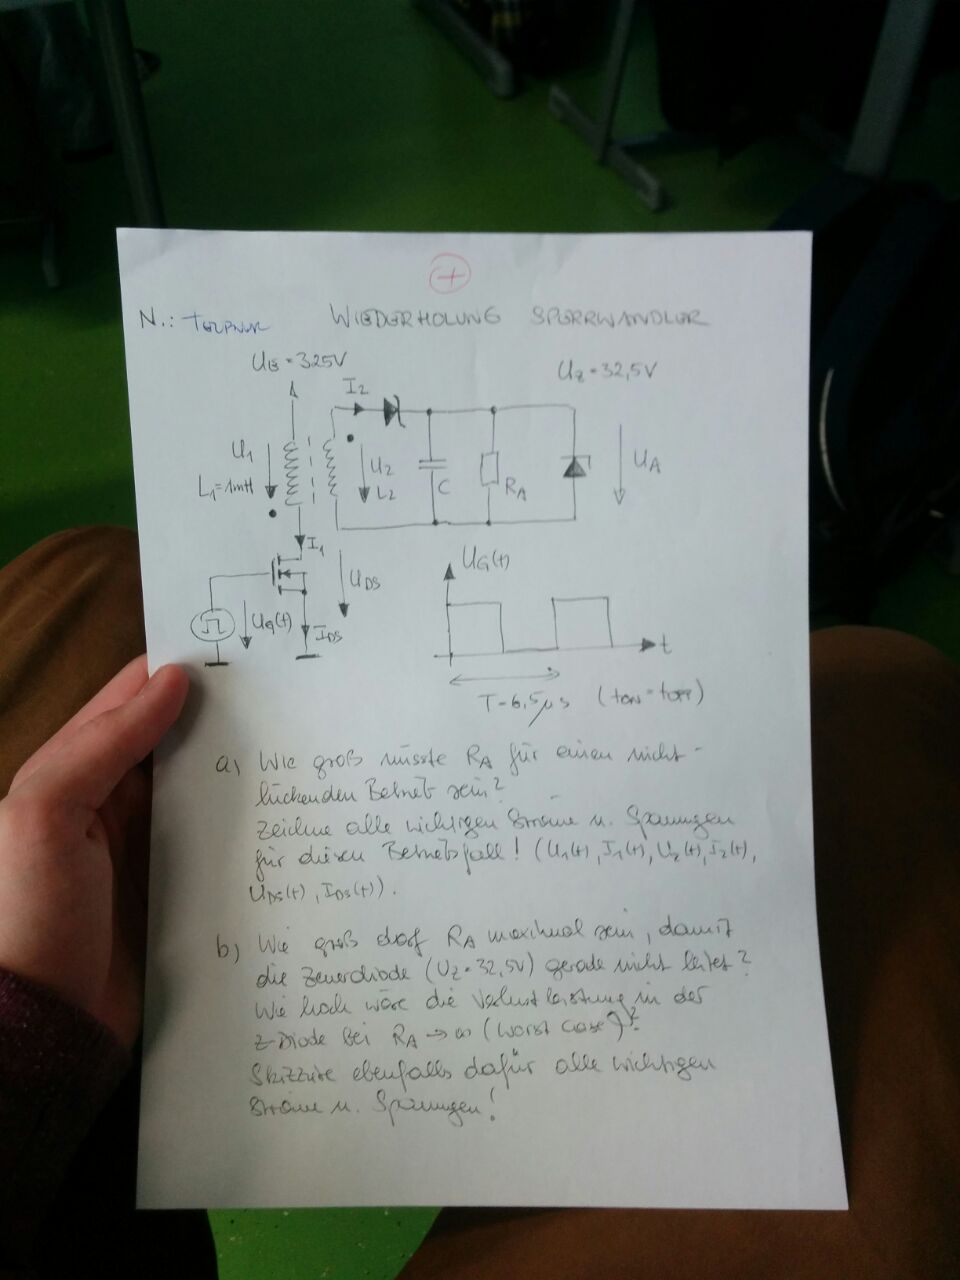 +
N.: WIEDERHOLUNG SPERRWANDLER
UB = 325V
I2
UZ = 32,5V
U1
L1 = 1mH
U2
L2
C
RA
UA
I1
UDS
UG(t)
IDS
UG(t)
t
T = 6,5µs (tON = tOFF)
a) Wie groß müsste RA für einen nicht-
lückenden Betrieb sein?
Zeichne alle wichtigen Ströme u. Spannungen
für diesen Betriebsfall! (U1(t), I1(t), U2(t), I2(t),
UDS(t), IDS(t)).
b) Wie groß darf RA maximal sein, damit
die Zenerdiode (UZ = 32,5V) gerade nicht leitet?
Wie hoch wäre die Verlustleistung in der
Z-Diode bei RA → ∞ (worst case)?
Skizziere ebenfalls dafür alle wichtigen
Ströme u. Spannungen!